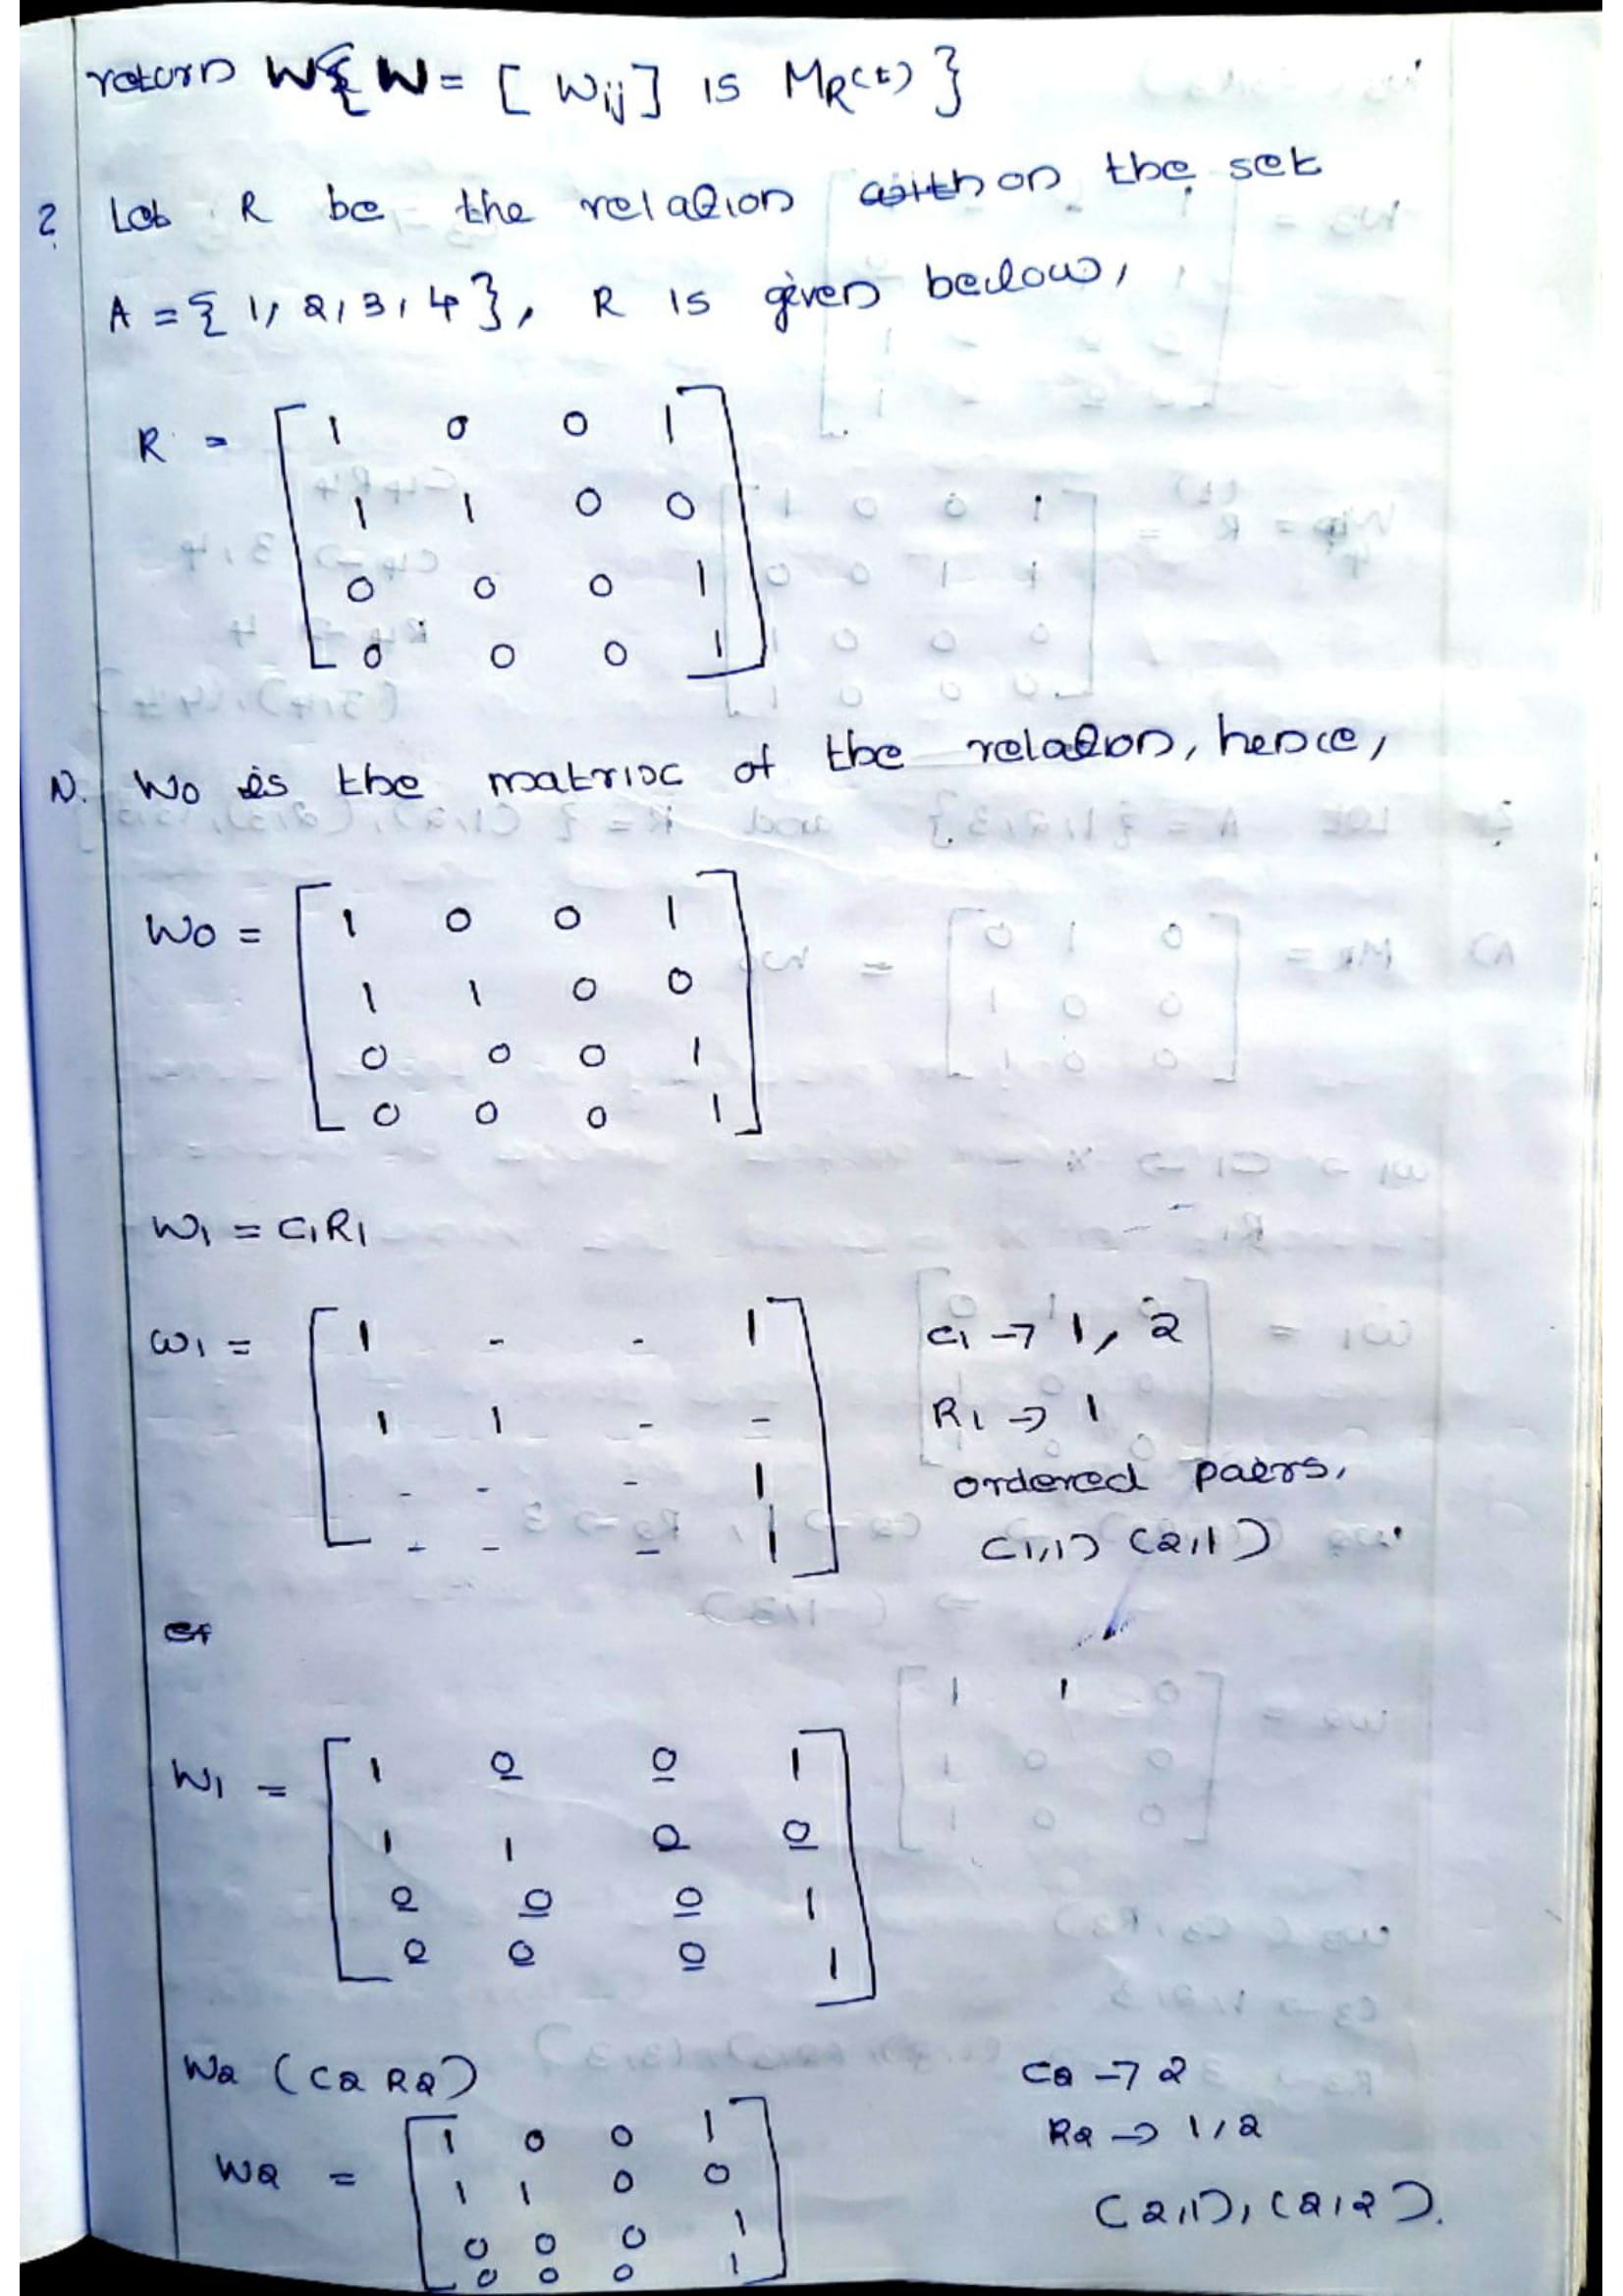 return W{W = [ Wij] is MR(t) }
? Let R be the relation with on the set
A = { 1, 2, 3, 4 }, R is given below,
R = [ 1 0 0 1
1 1 0 0
0 0 0 1
0 0 0 1 ]
A). W0 is the matrix of the relation, hence,
W0 = [ 1 0 0 1
1 1 0 0
0 0 0 1
0 0 0 1 ]
W1 = C1R1
W1 = [ 1 - - 1 C1 → 1, 2
1 1 - - R1 → 1
- - - 1 ordered pairs,
- - - 1 ] (1,1) (2,1)
W1 = [ 1 0 0 1
1 1 0 0
0 0 0 1
0 0 0 1 ]
W2 (C2 R2) C2 → 2
W2 = [ 1 0 0 1 R2 → 1,2
1 1 0 0 (2,1), (2,2).
0 0 0 1
0 0 0 1 ]